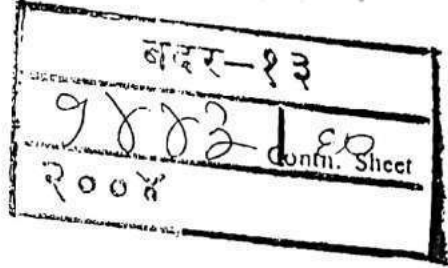 बदर-१३
१४४३ | ६० Contn. Sheet
२००४